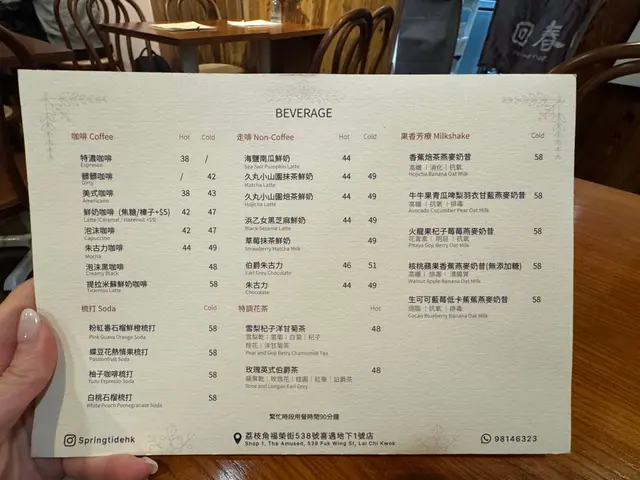 回春
BEVERAGE
咖啡 Coffee Hot Cold
特濃咖啡 38 /
Espresso
髒髒咖啡 / 42
Dirty
美式咖啡 38 43
Americano
鮮奶咖啡 (焦糖/榛子+$5) 42 47
Latte (Caramel / Hazelnut +$5)
泡沫咖啡 42 47
Capuccino
朱古力咖啡 44 49
Mocha
泡沫黑咖啡 48
Creamy Black
提拉米蘇鮮奶咖啡 58
Tiramisu Latte
梳打 Soda Cold
粉紅番石榴鮮橙梳打 58
Pink Guava Orange Soda
蝶豆花熱情果梳打 58
Passionfruit Soda
柚子咖啡梳打 58
Yuzu Espresso Soda
白桃石榴梳打 58
White Peach Pomegranate Soda
走啡 Non-Coffee Hot Cold
海鹽南瓜鮮奶 44
Sea Salt Pumpkin Latte
久丸小山園抹茶鮮奶 44 49
Matcha Latte
久丸小山園焙茶鮮奶 44 49
Hojicha Latte
浜乙女黑芝麻鮮奶 44 47
Black Sesame Latte
草莓抹茶鮮奶 49
Strawberry Matcha Milk
伯爵朱古力 46 51
Earl Grey Chocolate
朱古力 44 49
Chocolate
特調花茶 Hot
雪梨杞子洋甘菊茶 48
雪梨乾｜雪菊｜白菊｜杞子
桂花｜洋甘菊茶
Pear and Goji Berry Chamomile Tea
玫瑰英式伯爵茶 48
蘋果乾｜玫瑰花｜桂圓｜紅棗｜伯爵茶
Rose and Longan Earl Grey
果香芳療 Milkshake Cold
香蕉焙茶燕麥奶昔 58
高纖｜消化｜抗氧
Hojicha Banana Oat Milk
牛牛果青瓜啤梨羽衣甘藍燕麥奶昔 58
高纖｜抗氧｜排毒
Avocado Cucumber Pear Oat Milk
火龍果杞子莓莓燕麥奶昔 58
花青素｜明目｜抗氧
Pitaya Goji Berry Oat Milk
核桃蘋果香蕉燕麥奶昔(無添加糖) 58
高纖｜排毒｜清腸胃
Walnut Apple Banana Oat Milk
生可可藍莓低卡蕉蕉燕麥奶昔 58
燃脂｜抗氧｜排毒
Cacao Blueberry Banana Oat Milk
繁忙時段用餐時間90分鐘
Springtidehk
荔枝角福榮街538號喜遇地下1號店
Shop 1, The Amused, 538 Fuk Wing St, Lai Chi Kwok
98146323